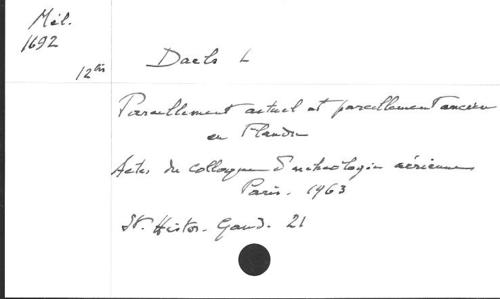 Mél.
1692
12bis
Daels L
Parcellement actuel et parcellement ancien
en Flandre
Actes du colloque d'archéologie aérienne
Paris. 1963
St. Histor. Gand. 21